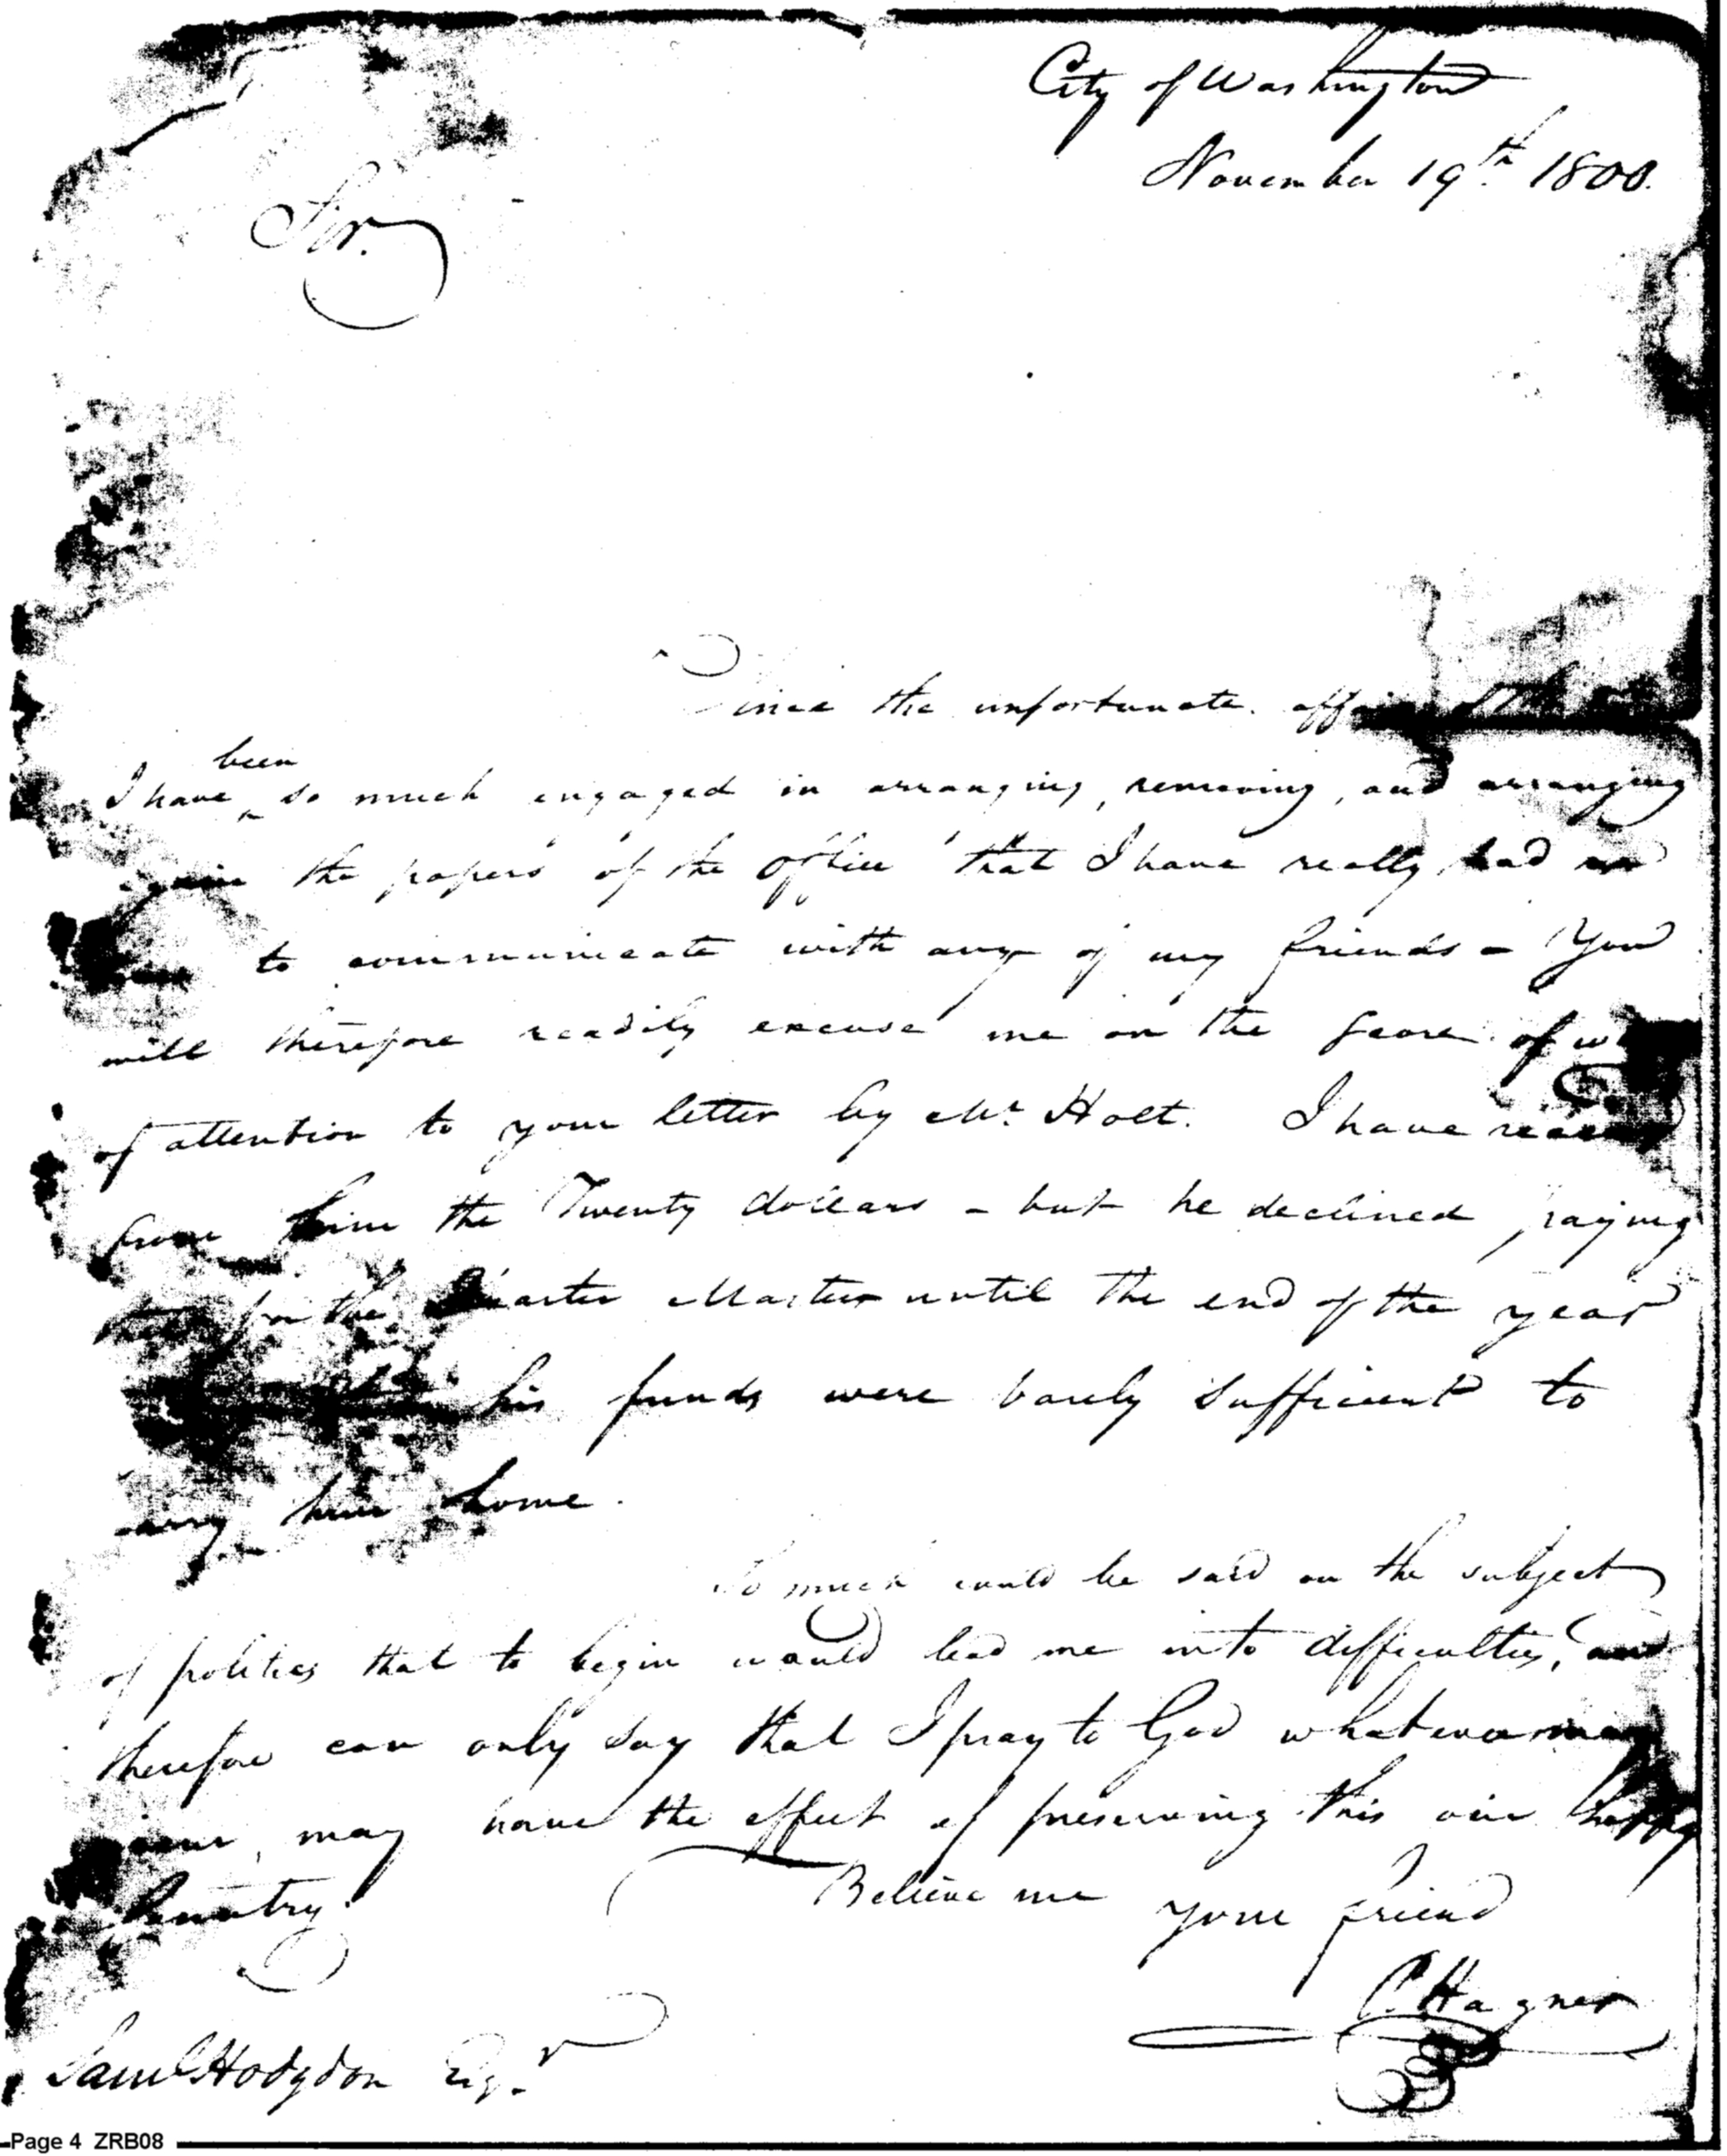 City of Washington
November 19th 1800.
Sir.
Since the unfortunate affair
been
I have so much engaged in arranging, removing, and arranging
again the papers of the Office that I have really had no
to communicate with any of my friends - You
will therefore readily excuse me on the score of
of attention to your letter by Mr. Holt. I have
from him the Twenty dollars - but he declined paying
for the Quarter Master until the end of the year
his funds were barely sufficient to
carry him home.
So much could be said on the subject
of politics that to begin would lead me into difficulties, and
therefore can only say that I pray to God whatever may
occur, may have the effect of preserving this our happy
Country.
Believe me your friend
P. Hagner
Saml Hodgdon Esqr
Page 4 ZRB08